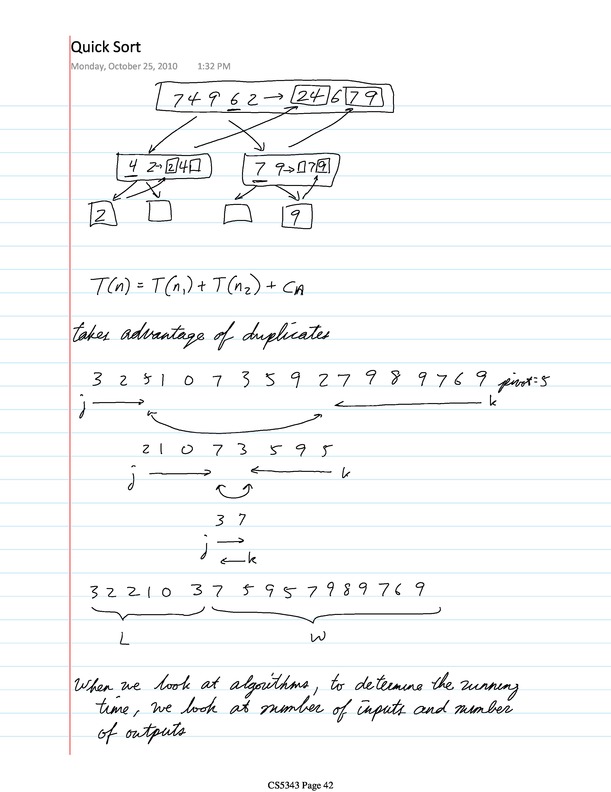 Quick Sort
Monday, October 25, 2010 1:32 PM
7 4 9 6 2 → 2 4 6 7 9
4 2 → 2 4
7 9 → 7 9
2
9
T(n) = T(n₁) + T(n₂) + cn
takes advantage of duplicates
3 2 5 1 0 7 3 5 9 2 7 9 8 9 7 6 9 pivot=5
j k
2 1 0 7 3 5 9 5
j k
3 7
j
k
3 2 2 1 0 3 7 5 9 5 7 9 8 9 7 6 9
L W
When we look at algorithms, to determine the running
time, we look at number of inputs and number
of outputs
CS5343 Page 42